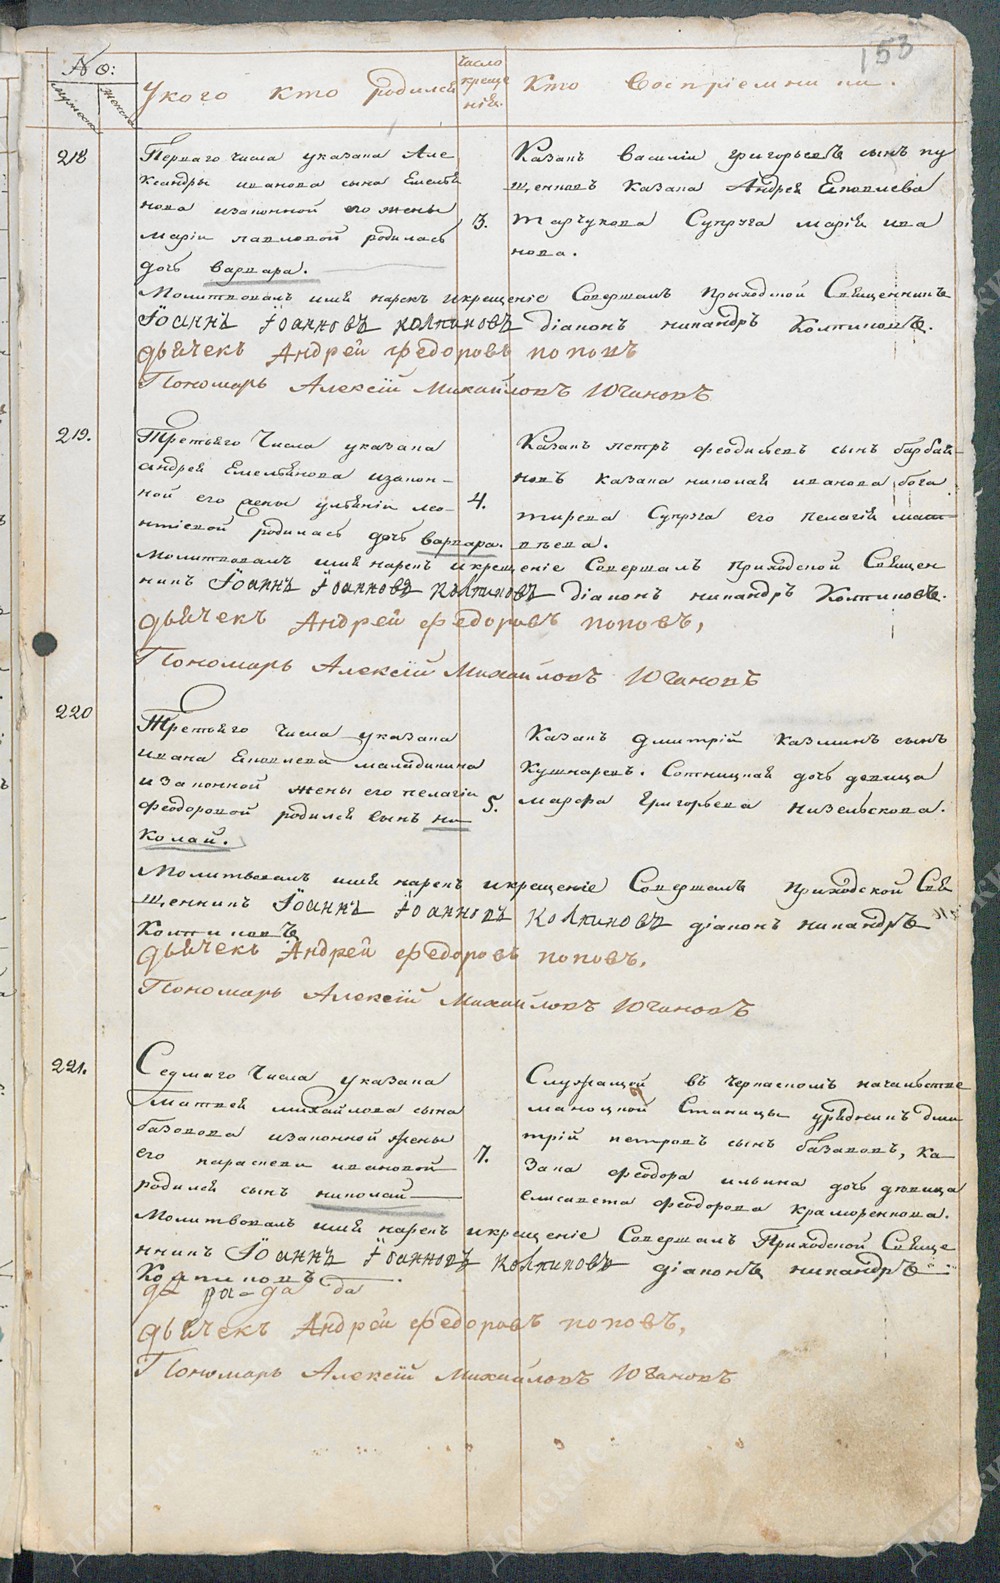 153
№:
мужеска
женска
У кого кто родился
число
креще
нія.
Кто воспріемники.
218
Перваго числа у казака Але
ксандры иванова сына Емелья
нова иззаконной его жены
маріи павловой родилась
дочь варвара.
3.
Казакъ василій григорьевъ сынъ пу
щенковъ казака Андрея Яковлева
Тарчукова Супруга марія ива
нова.
Молитвовалъ имя нарекъ икрещеніе Совершалъ Приходской Священникъ
Іоаннъ Іоанновъ колпиковъ діаконъ никандръ Колпиковъ.
дьячекъ Андрей федоровъ поповъ
Пономарь Алексій Михайловъ Югановъ
219.
Третьяго Числа указака
андрея Емельянова иззакон-
ной его жены ульяніи лео-
нтіевой родилась дочь варвара.
4.
Казакъ петръ феодисьевъ сынъ барбаш-
новъ казака николая иванова бога
тирева Супруга его пелагія мат
вѣева.
молитвовалъ имя нарекъ икрещеніе Совершалъ приходской Священ
никъ Іоаннъ Іоанновъ колпиковъ діаконъ никандръ Колпиковъ.
дьячекъ Андрей федоровъ поповъ,
Пономарь Алексій Михайловъ Югановъ
220
Третьяго числа указака
ивана Яковлева маладикина
иззаконной жены его пелагіи
феодоровой родился сынъ ни
колай.
5.
Казакъ дмитрій Казминъ сынъ
Кушнаревъ. Сотницкая дочь девица
марфа Григорьева Кизельскова.
Молитвовалъ имя нарекъ икрещеніе Совершалъ приходской Свя
щенникъ Іоаннъ Іоанновъ колпиковъ діаконъ никандръ
Колпиковъ
дьячекъ Андрей федоровъ поповъ,
Пономарь Алексій Михайловъ Югановъ
221.
Седмаго Числа указака
Матвея михайлова сына
базовова иззаконной жены
его параскеви ивановой
родился сынъ николай
7.
Служащій въ Черкаскомъ начальстве
маноцкой Станицы урядникъ дми
трій петровъ сынъ базововъ, ка
зака феодора ильина дочь девица
елисавета феодорова Краморенкова.
Молитвовалъ имя нарекъ икрещеніе Совершалъ Приходской Свяще
нникъ Іоаннъ Іоанновъ колпиковъ діаконъ никандръ
Колпиковъ
да ра-да да
дьячекъ Андрей федоровъ поповъ,
Пономарь Алексій Михайловъ Югановъ